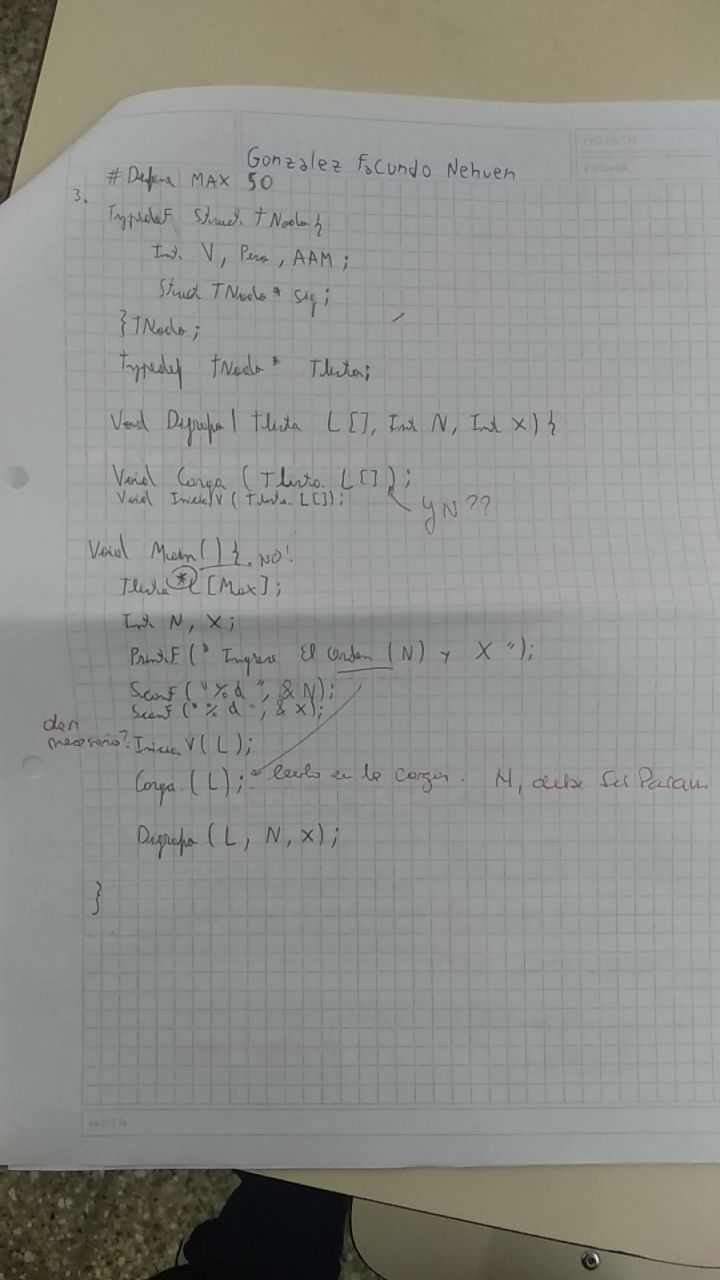 HOJA N
FECHA
Gonzalez Facundo Nehuen
# Define MAX 50
3.
Typedef Struct tNodo {
Int V, Peso, AAM;
Struct TNodo * sig;
} TNodo;
typedef tNodo * Tlista;
Void Digrafo ( tlista L [], Int N, Int X) {
Void Carga ( Tlista L [] );
Void Inicia V ( Tlista L[]);
y N??
Void Main() {. NO!
Tlista * L [Max];
Int N, X;
PrintF (" Ingrese El orden (N) y X ");
Scanf ("%d", & N);
Scanf ("%d", & x);
necesario? Inicia V ( L );
Carga ( L ); leerlo en la carga. N, debe ser Param.
Digrafo ( L, N, x );
}
NOTA